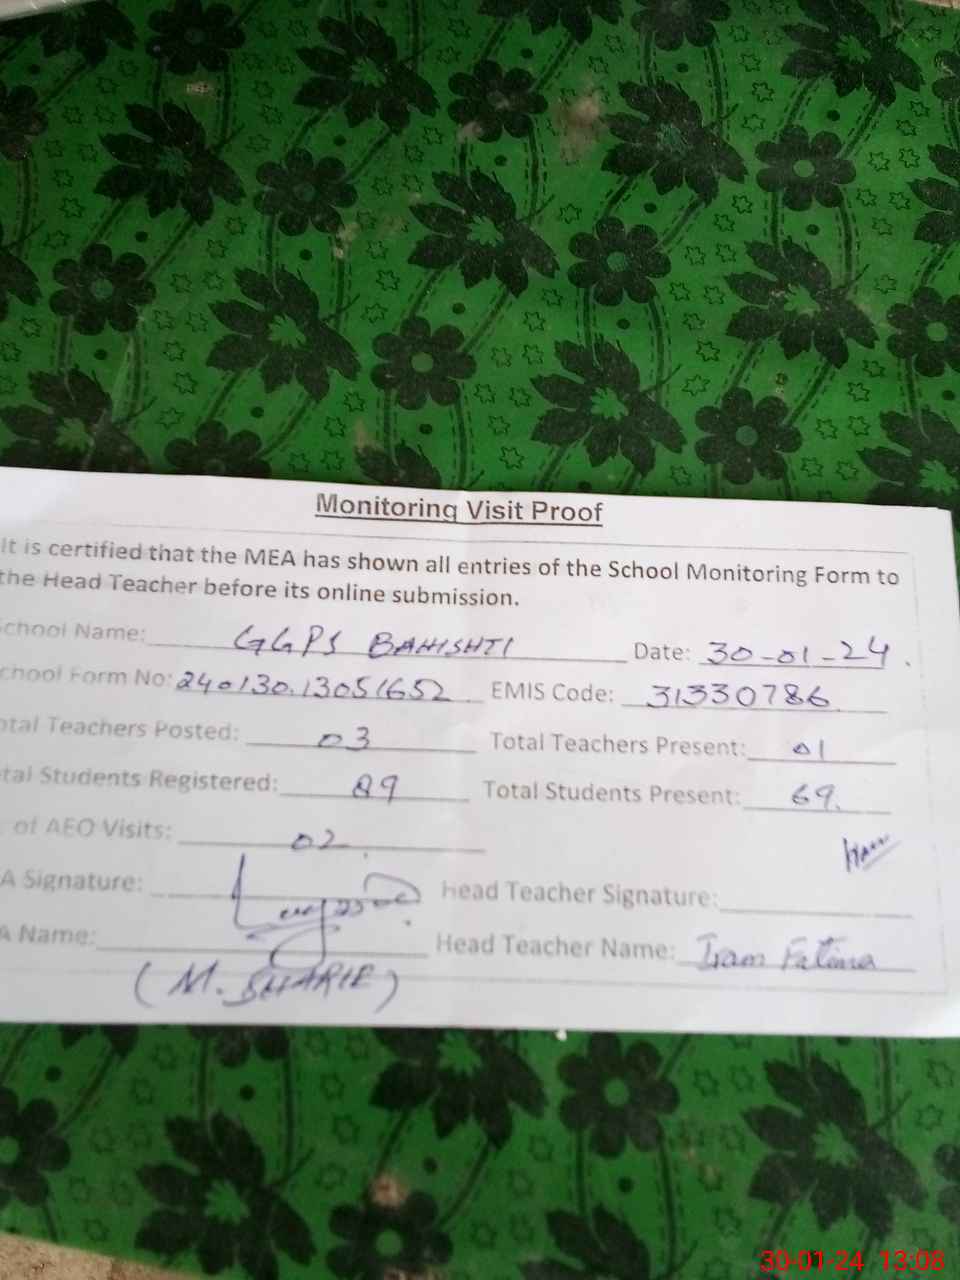 Monitoring Visit Proof
It is certified that the MEA has shown all entries of the School Monitoring Form to
the Head Teacher before its online submission.
chool Name: GGPS BAHISHTI Date: 30-01-24.
chool Form No: 240130.13051652 EMIS Code: 31330786
otal Teachers Posted: 03 Total Teachers Present: 01
tal Students Registered: 89 Total Students Present: 69.
of AEO Visits: 02
A Signature: Head Teacher Signature:
A Name: Head Teacher Name: Iram Fatima
(M. SHARIF)
30-01-24 13:08